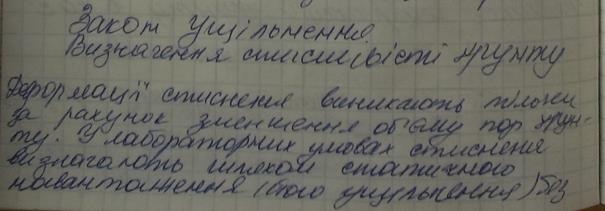 Закон ущільнення
Визначення стисливісті грунту
Деформації стиснення виникають тільки
за рахунок зменшення об'єму пор грун-
ту. У лабораторних умовах стиснення
визначають шляхом статичного
навантаження (його ущільнення) без